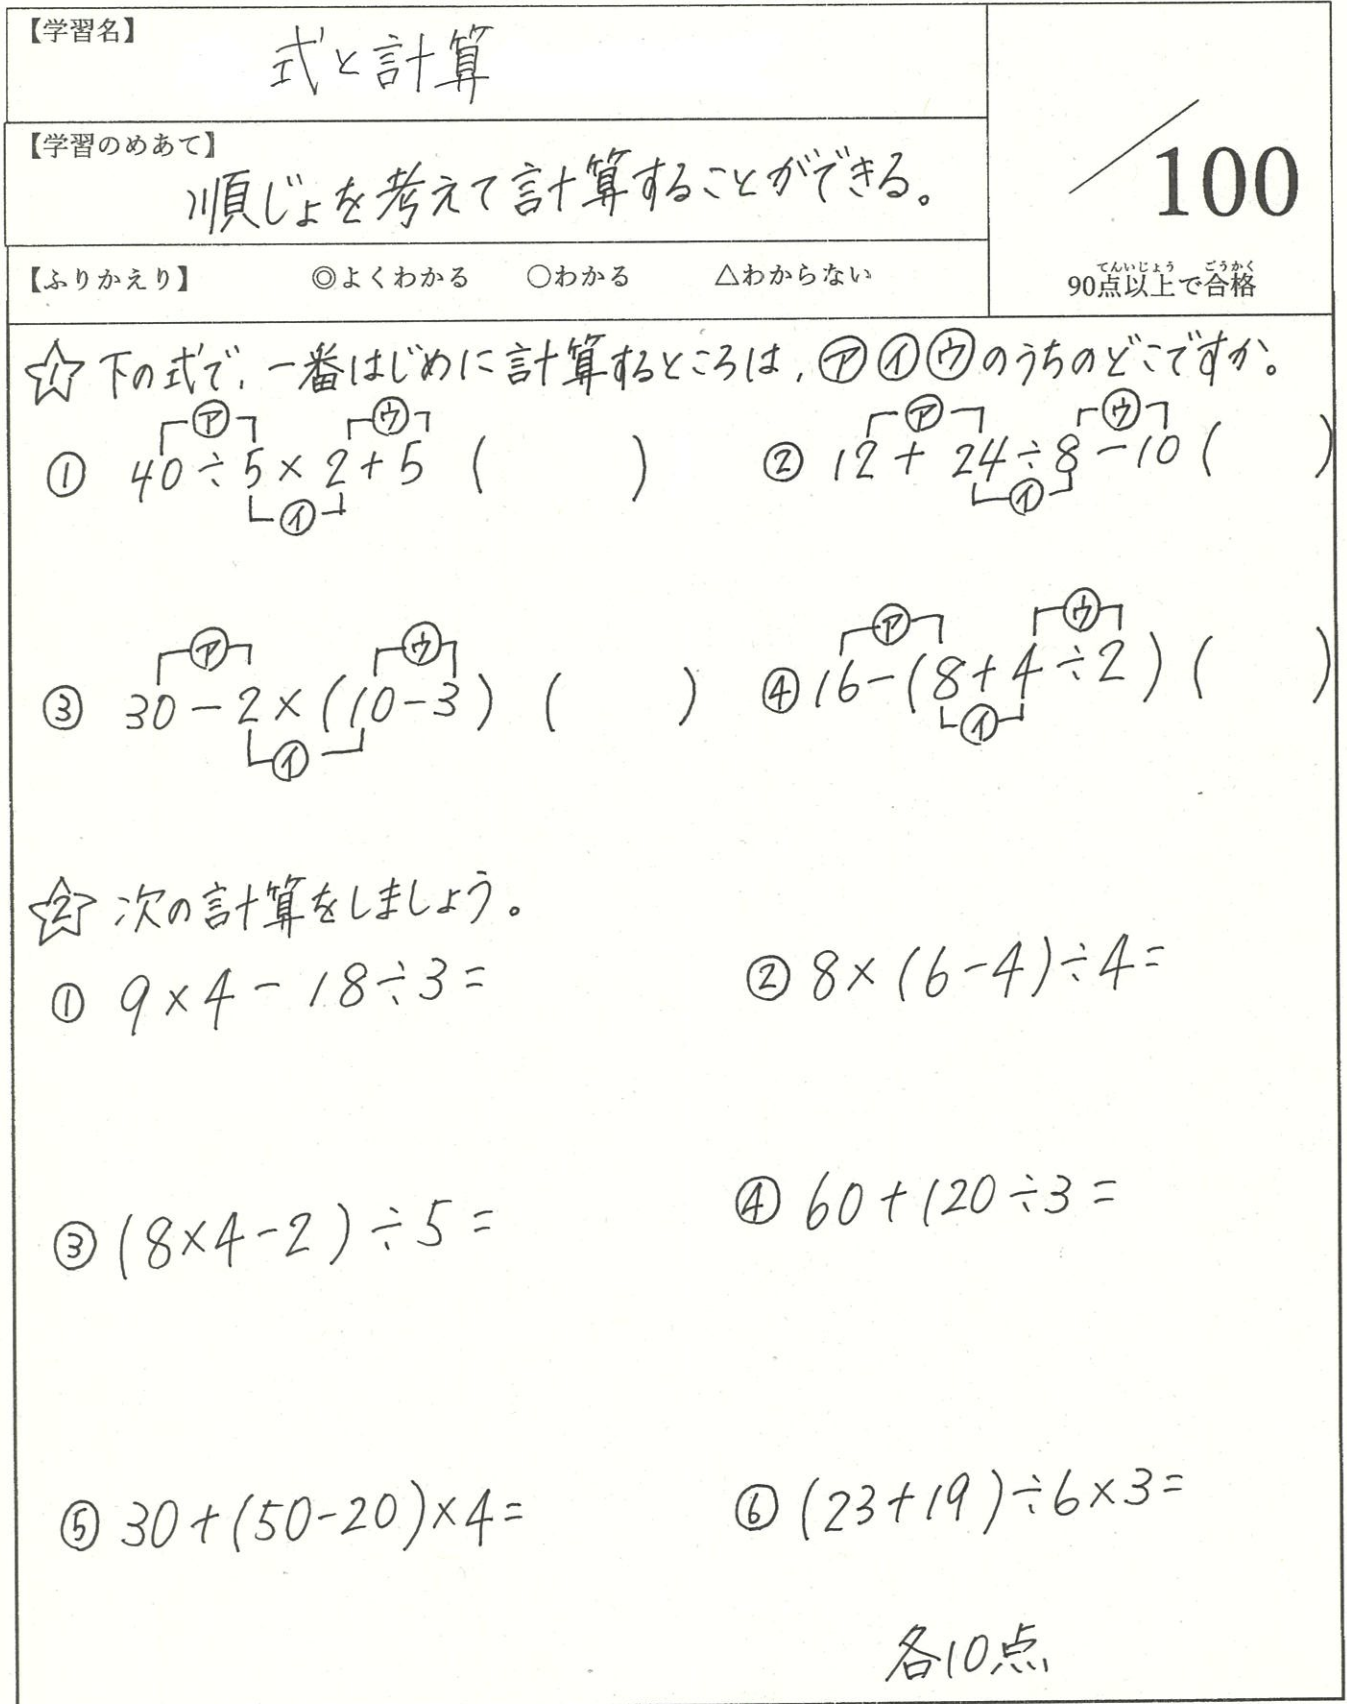 【学習名】
式と計算
【学習のめあて】
順じょを考えて計算することができる。
【ふりかえり】 ◎よくわかる ○わかる △わからない
／100
てんいじょう ごうかく
90点以上で合格
☆1 下の式で、一番はじめに計算するところは、㋐㋑㋒のうちのどこですか。
㋐ ㋒
① 40÷5×2+5 ( )
㋑
㋐ ㋒
② 12+24÷8-10 ( )
㋑
㋐ ㋒
③ 30-2×(10-3) ( )
㋑
㋐ ㋒
④ 16-(8+4÷2) ( )
㋑
☆2 次の計算をしましょう。
① 9×4-18÷3=
② 8×(6-4)÷4=
③ (8×4-2)÷5=
④ 60+120÷3=
⑤ 30+(50-20)×4=
⑥ (23+19)÷6×3=
各10点